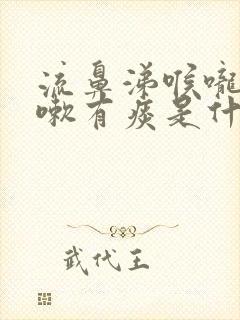 流鼻涕喉嚨
嗽有痰是什
武代王